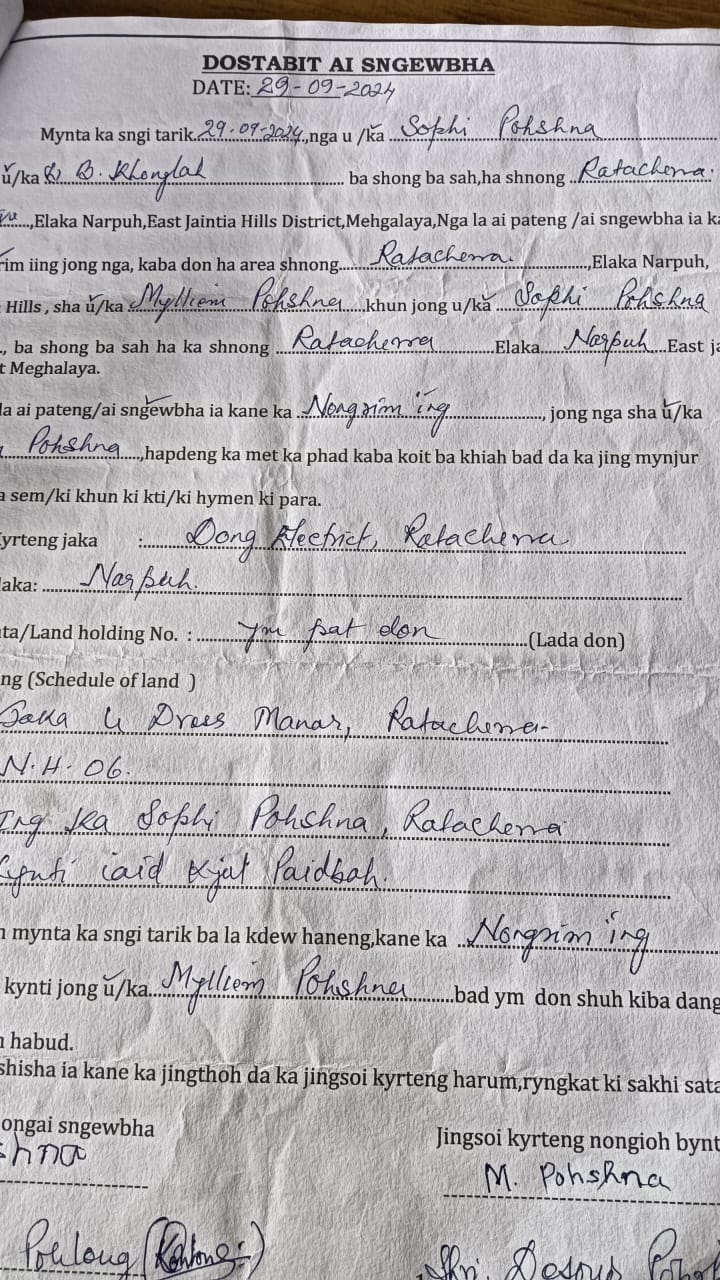 DOSTABIT AI SNGEWBHA
DATE: 29-09-2024
Mynta ka sngi tarik.29-09-2024.,nga u /ka Sophi Pohshna
u/ka B. Khonglah ba shong ba sah,ha shnong Ratacherra.
,Elaka Narpuh,East Jaintia Hills District,Mehgalaya,Nga la ai pateng /ai sngewbha ia ka
rim iing jong nga, kaba don ha area shnong Ratacherra. ,Elaka Narpuh,
Hills , sha u/ka Mylliem Pohshna ,khun jong u/ka Sophi Pohshna
., ba shong ba sah ha ka shnong Ratacherra Elaka Narpuh East ja
t Meghalaya.
la ai pateng/ai sngewbha ia kane ka Nongrim ing , jong nga sha u/ka
Pohshna ,hapdeng ka met ka phad kaba koit ba khiah bad da ka jing mynjur
a sem/ki khun ki kti/ki hymen ki para.
yrteng jaka : Dong Electrict, Ratacherra
laka: Narpuh.
ta/Land holding No. : ym pat don (Lada don)
ng (Schedule of land )
Jaka u Drees Manar, Ratacherra
N.H. 06.
Ing ka Sophi Pohshna, Ratacherra
Lynti iaid kjat Paidbah.
n mynta ka sngi tarik ba la kdew haneng,kane ka Nongrim ing
kynti jong u/ka Mylliem Pohshna bad ym don shuh kiba dang
n habud.
shisha ia kane ka jingthoh da ka jingsoi kyrteng harum,ryngkat ki sakhi sata
ongai sngewbha
Jingsoi kyrteng nongioh bynt
shna
M. Pohshna
Pohlong
Shri